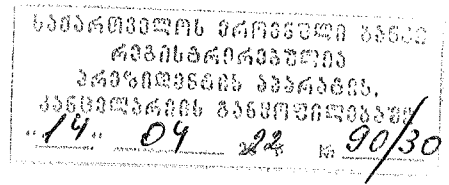 საქართველოს ეროვნული ბანკი
რეგისტრირებულია
პრეზიდენტის აპარატის,
კანცელარიის განყოფილებაში
"14" 04 22 № 90/30